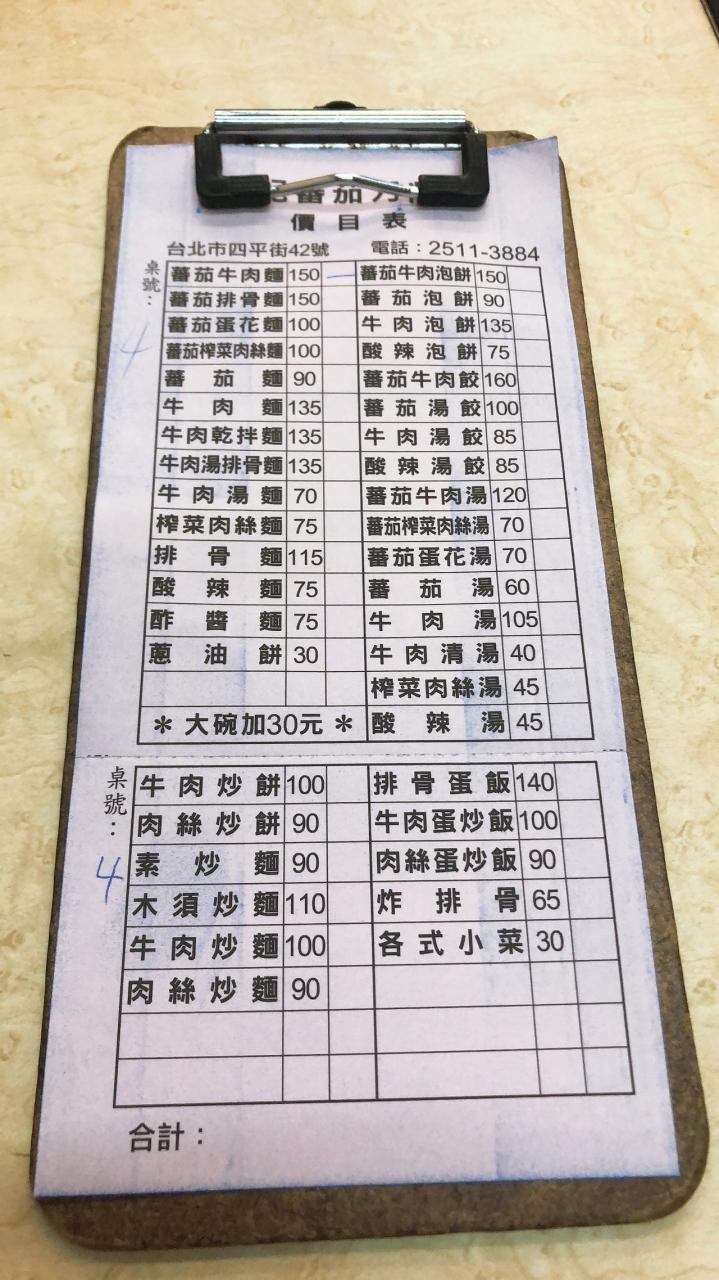 番茄
價目表
台北市四平街42號 電話：2511-3884
桌號：
4
蕃茄牛肉麵 150 一 蕃茄牛肉泡餅 150
蕃茄排骨麵 150 蕃茄泡餅 90
蕃茄蛋花麵 100 牛肉泡餅 135
蕃茄榨菜肉絲麵 100 酸辣泡餅 75
蕃茄麵 90 蕃茄牛肉餃 160
牛肉麵 135 蕃茄湯餃 100
牛肉乾拌麵 135 牛肉湯餃 85
牛肉湯排骨麵 135 酸辣湯餃 85
牛肉湯麵 70 蕃茄牛肉湯 120
榨菜肉絲麵 75 蕃茄榨菜肉絲湯 70
排骨麵 115 蕃茄蛋花湯 70
酸辣麵 75 蕃茄湯 60
酢醬麵 75 牛肉湯 105
蔥油餅 30 牛肉清湯 40
榨菜肉絲湯 45
＊大碗加30元＊ 酸辣湯 45
桌號：
4
牛肉炒餅 100 排骨蛋飯 140
肉絲炒餅 90 牛肉蛋炒飯 100
素炒麵 90 肉絲蛋炒飯 90
木須炒麵 110 炸排骨 65
牛肉炒麵 100 各式小菜 30
肉絲炒麵 90
合計：